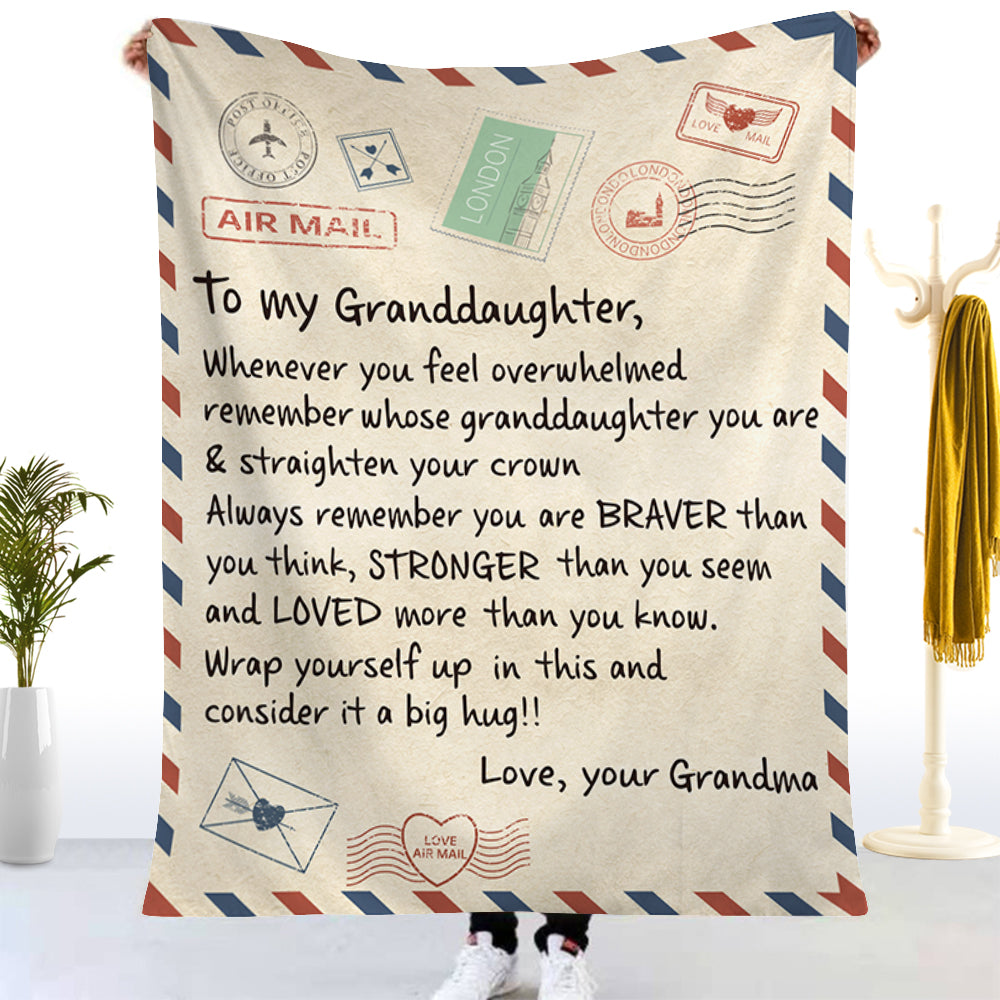 POST OFFICE POST OFFICE
LONDON
LOVE MAIL
LONDONLONDONLONDONLONDON
AIR MAIL
To my Granddaughter,
Whenever you feel overwhelmed
remember whose granddaughter you are
& straighten your crown
Always remember you are BRAVER than
you think, STRONGER than you seem
and LOVED more than you know.
Wrap yourself up in this and
consider it a big hug!!
Love, your Grandma
LOVE
AIR MAIL